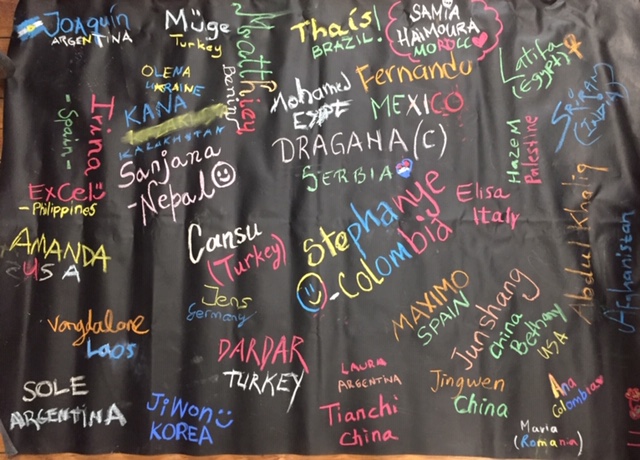 JOAQUÍN
ARGENTINA
Müge
Turkey
Matthieu
Benin
Thaís!
BRAZIL!
SAMIA
HAIMOURA
MOROCCO
Latifa
(Egypt)
Srirajni
(India)
OLENA
UKRAINE
KANA
KAZAKHSTAN
Irina
-Spain-
Mohamed
Fernando
MEXICO
DRAGANA (C)
SERBIA
Hazem
Palestine
Sanjana
-Nepal
Excel
-Philippines
Stephanye
-Colombia
Elisa
Italy
Abdul Khaliq
Afghanistan
AMANDA
USA
Cansu
(Turkey)
Jens
Germany
MAXIMO
SPAIN
Junshang
China
Bethany
USA
Vongdalone
Laos
DARDAR
TURKEY
LAURA
ARGENTINA
Jingwen
China
Ana
Colombia
SOLE
ARGENTINA
JiWon
KOREA
Tianchi
China
Maria
(Romania)